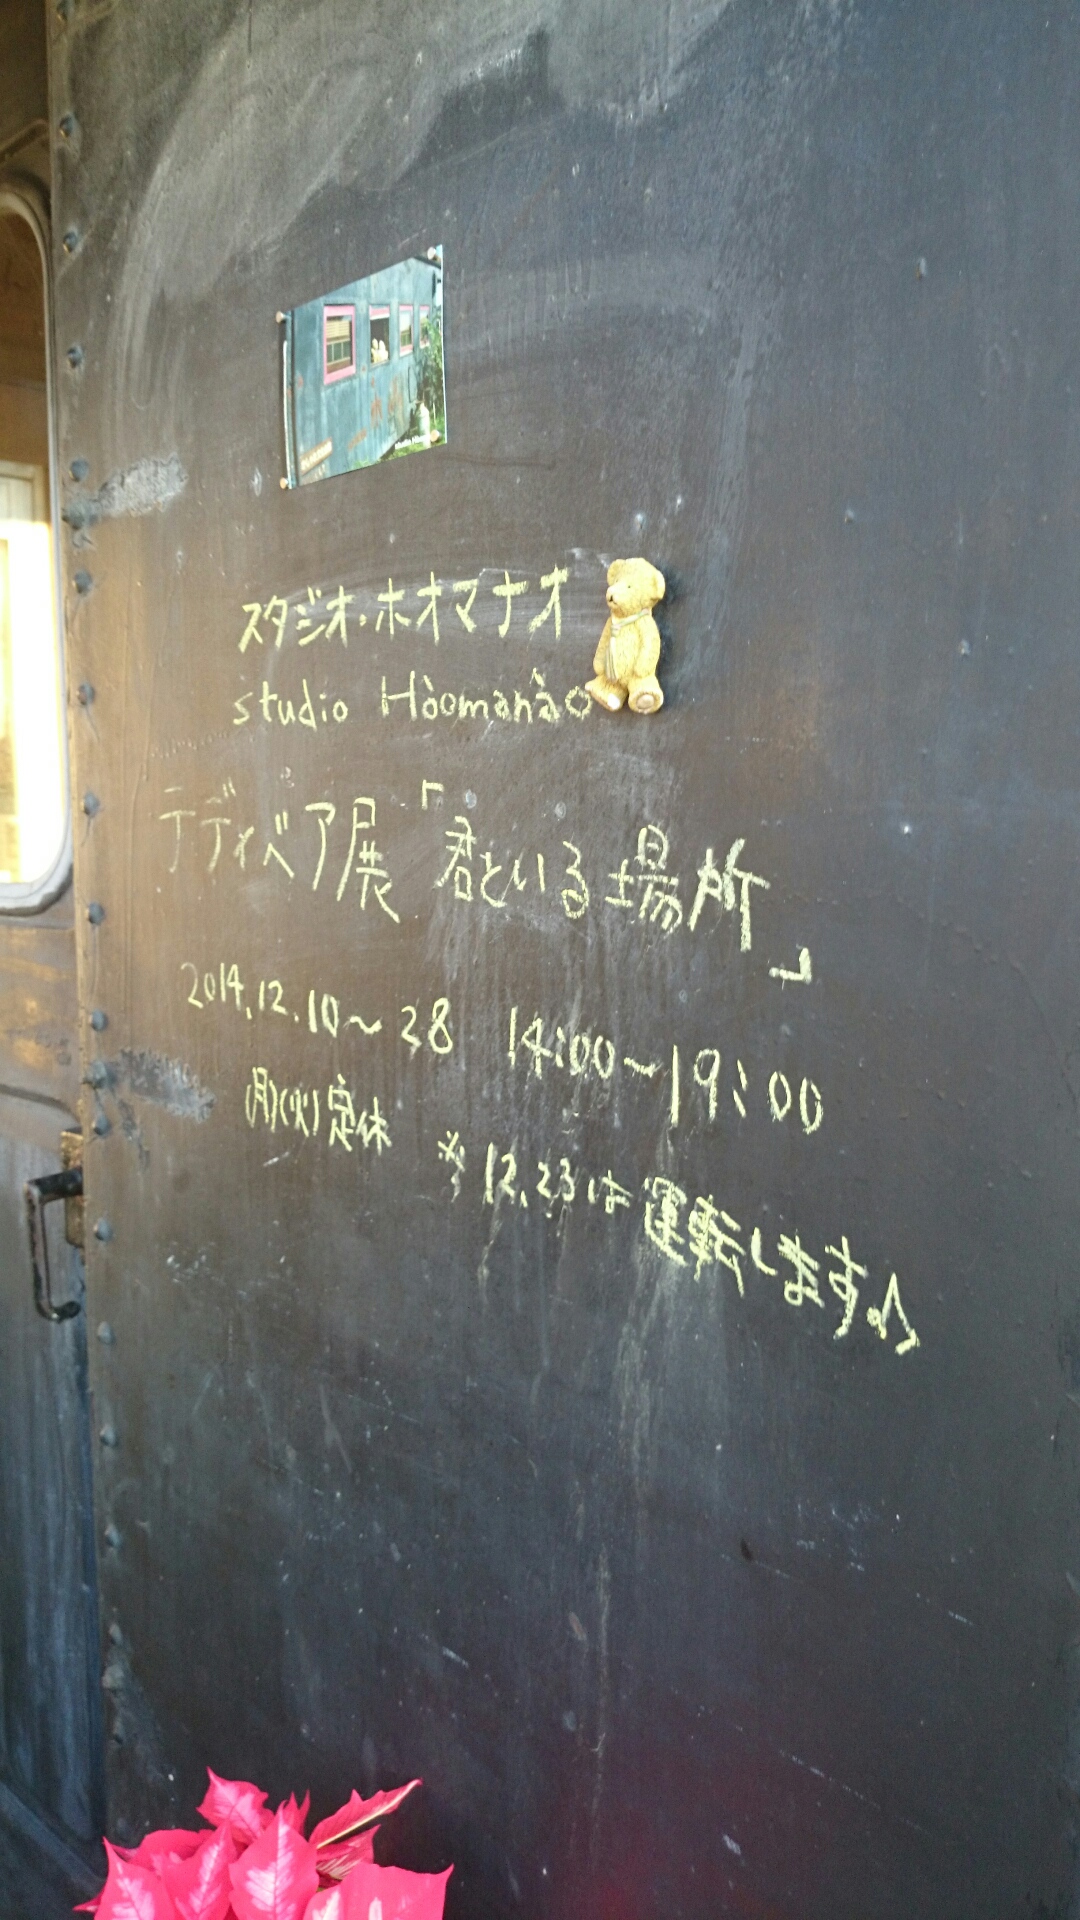 スタジオ・ホオマナオ
studio Ho'omana'o
テディベア展「君といる場所」
2014.12.10〜28 14:00〜19:00
(月)(火)定休 ※12.23は運転します♪